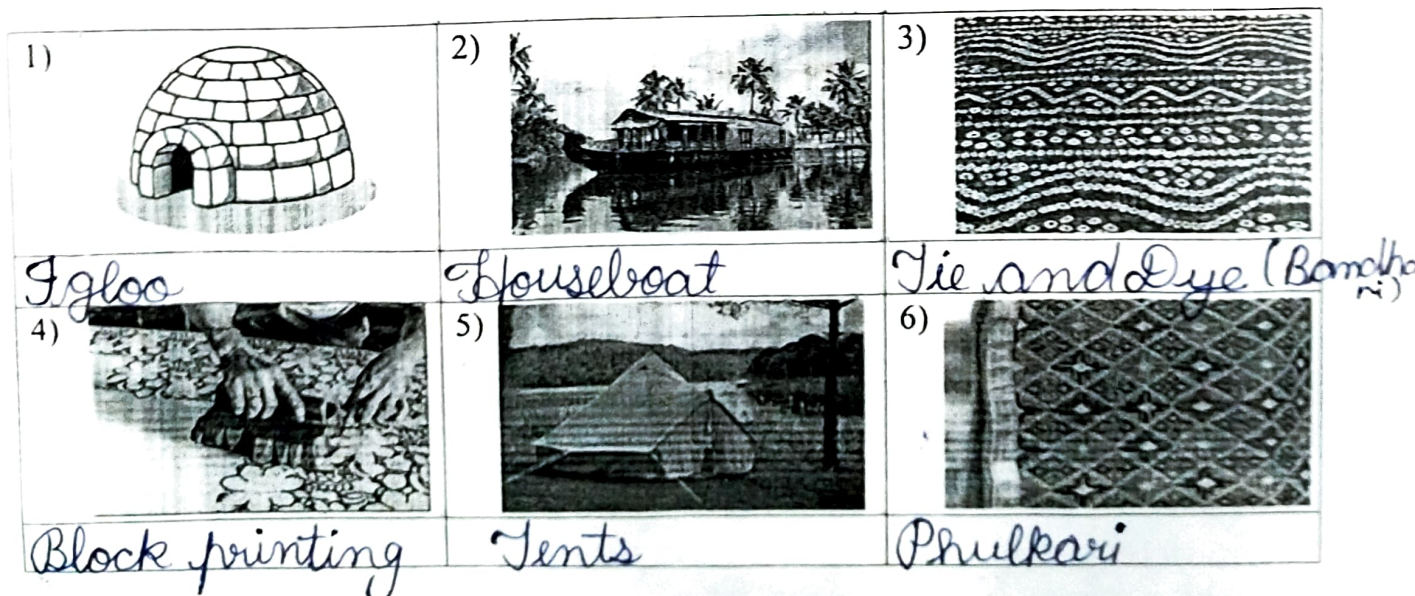 1) 2) 3)
Igloo Houseboat Tie and Dye (Bandha
ni)
4) 5) 6)
Block printing Tents Phulkari